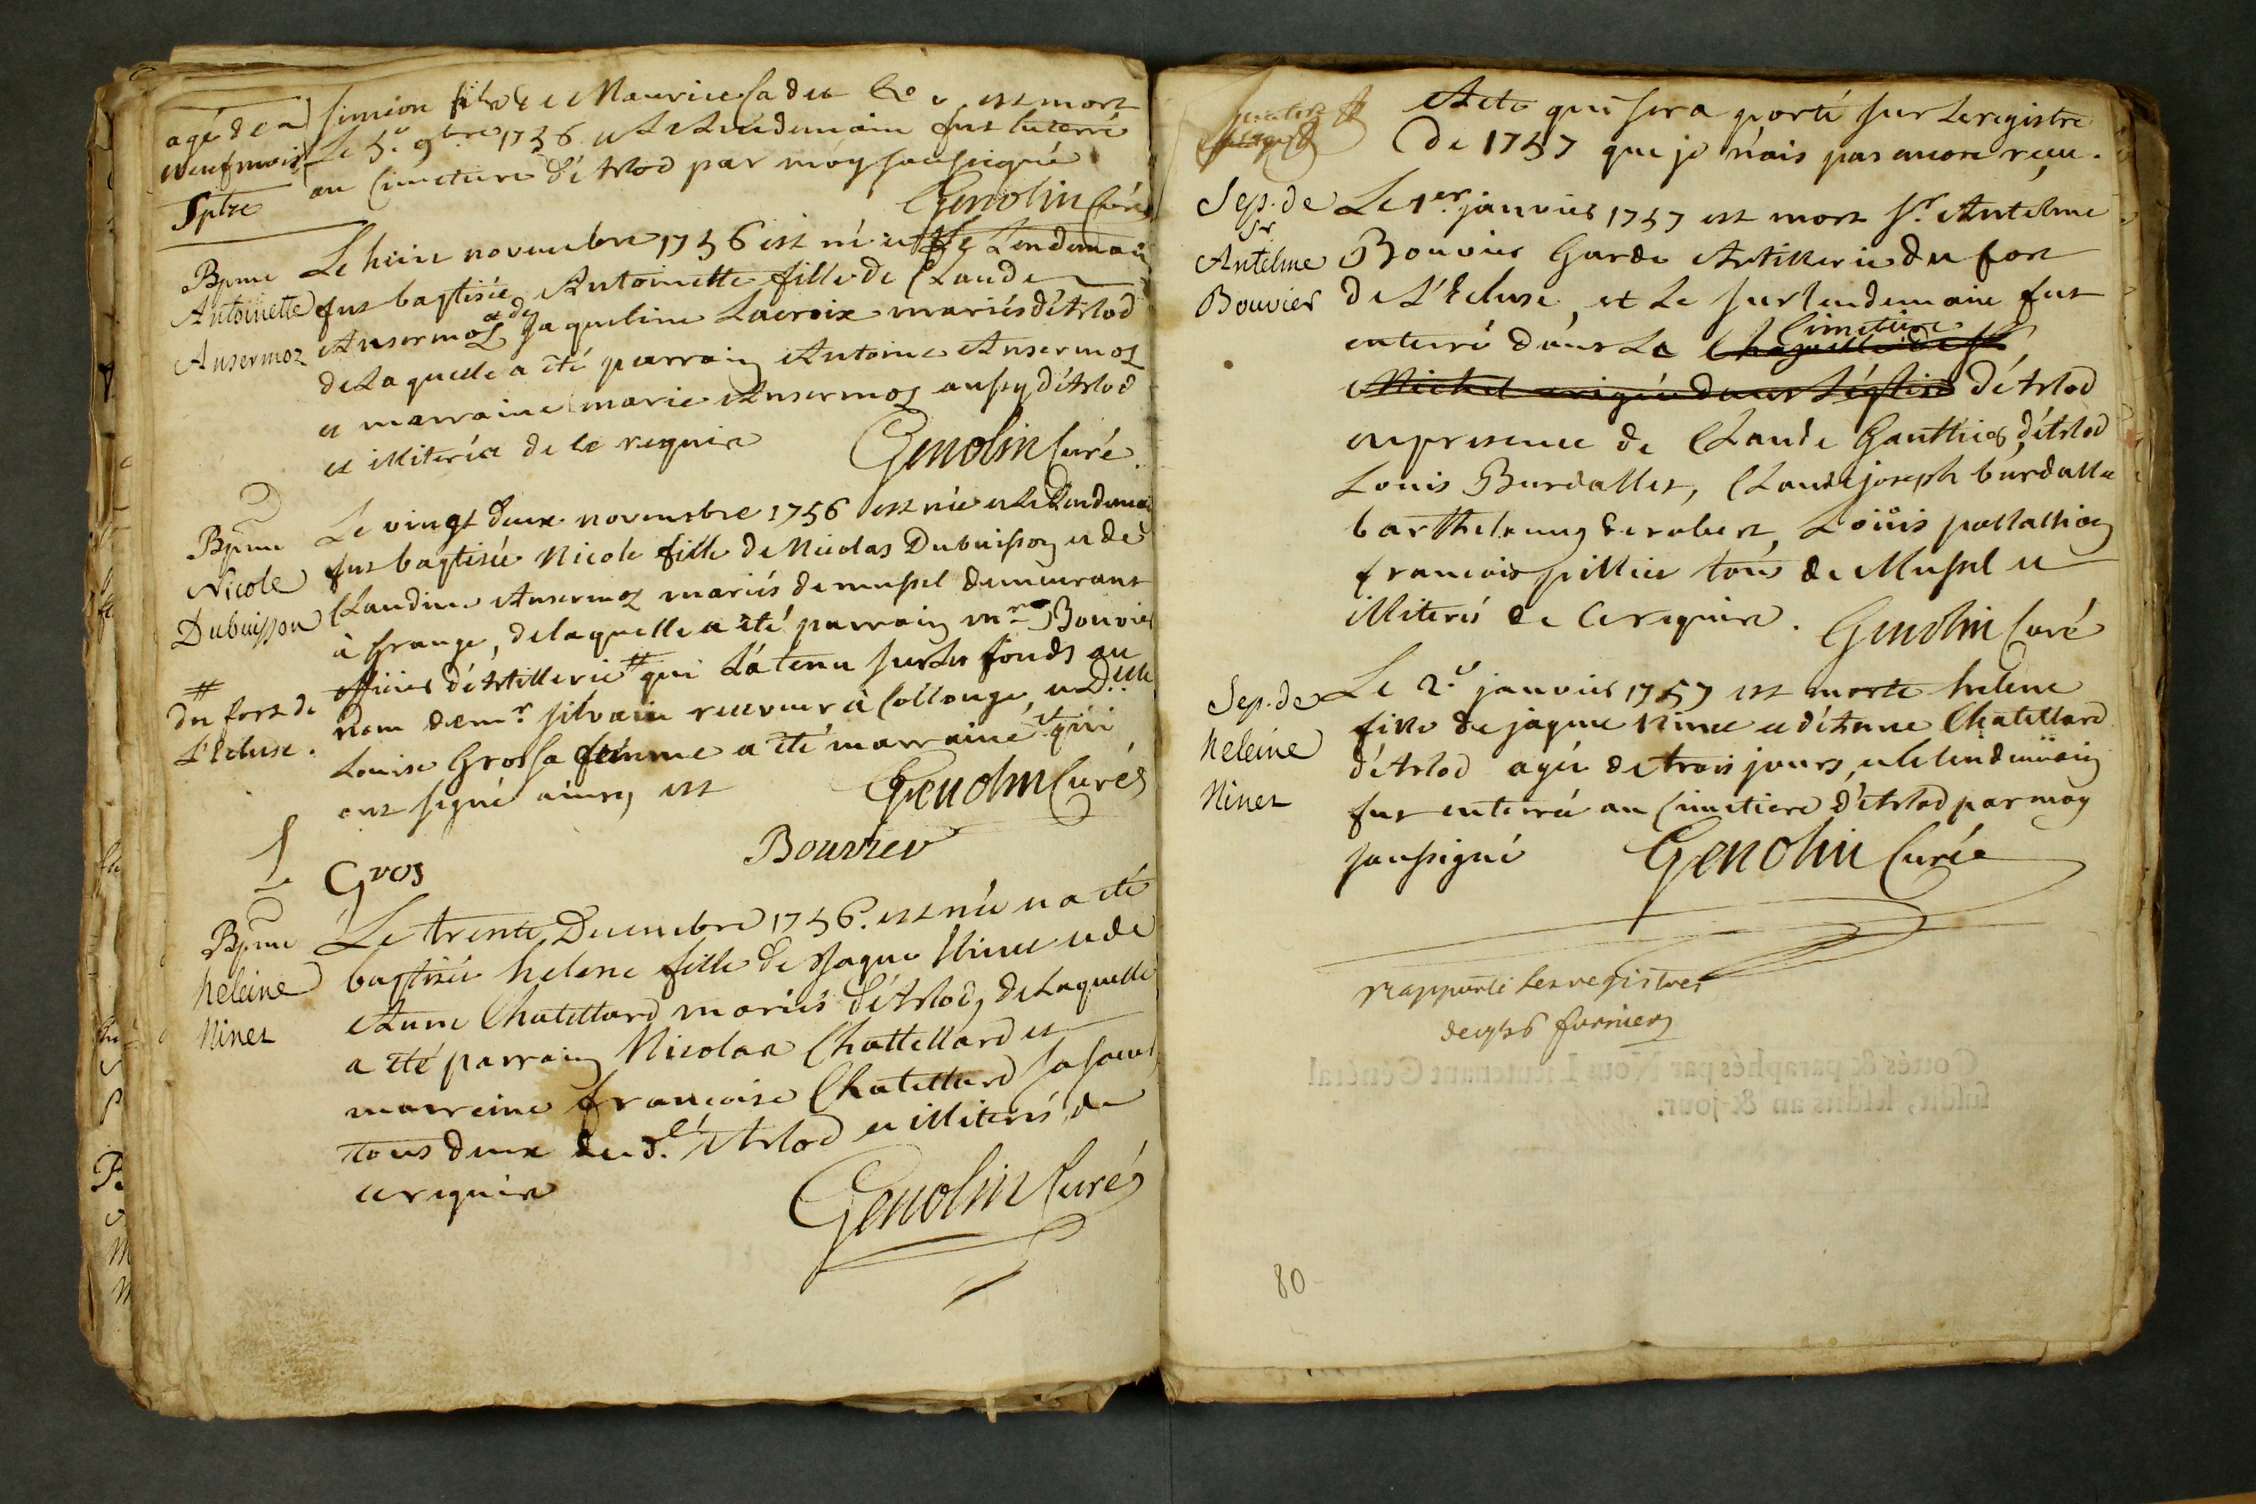 agé de
neuf mois
Sptre
simeon fils de Maurice Cadet est mort
Le 5e 9bre 1756 et Le Lendemain fut enterré
au Cimetiere d'Arlod par moy soussigné
Genolin Curé
Bpme
Antoinette
Ansermoz
Le huit novembre 1756 est née et Le Lendemain
fut baptisée Antoinette fille de Claude
Ansermoz et de Jaqueline Lacroix mariés d'Arlod
de Laquelle a été parrain Antoine Ansermoz
et marraine marie Ansermoz aussy d'Arlod
et illiterés de ce requis
Genolin Curé.
Bpme
Nicole
Dubuisson
Le vingt deux novembre 1756 est née et Le Lendemain
fut baptisée Nicole fille de Nicolas Dubuisson et de
Claudine Ansermoz mariés de mussel demeurant
à grange, de laquelle a été parrain mr Bouvier
officier d'Artillerie # qui L'a tenu sur les fonds au
nom de mr silvain receveur à Collonge, et Delle
Louise Gros sa femme a été marraine qui
ont signé ainsy est
Genolin Curé
#
du fort de
L'Ecluse.
Bouvier
L Gros
Bpme
heleine
Ninet
Le trente Decembre 1756. est née et a été
baptisée helene fille de Jaque Ninet et de
Anne Chatellard mariés d'Arlod, de Laquelle
a été parrain Nicolas Chattellard et
marreine francoise Chatellard sa soeur
tous deux dud. Arlod et illiterés de
ce requis
Genolin Curé
Acte qui sera porté sur Le registre
de 1757 que je n'ais pas encore reçu.
Sep. de
Sr
Antelme
Bouvier
Le 1er janvier 1757 est mort Sr Antelme
Bouvier Garde Artillerie du fort
de L'Ecluse, et Le surlendemain fut
Cimetiere
enterré dans Le Chapelle de St
Michel erigée dans L'église d'Arlod
en presence de Claude Gauthier d'Arlod
Louis Burdallet, Claude joseph burdallet
barthelemy derobert, Loüis passation
francois pillier tous de Mussel et
illiterés de Ce requis.
Genolin Curé
Sep. de
heleine
Ninet
Le 2e janvier 1757 est morte helene
fille de jaque Ninet et d'Anne Chatellard
d'Arlod agée de trois jours, et le lendemain
fut enterrée au Cimetiere d'Arlod par moy
soussigné
Genolin Curé
rapporté les registres
de 1756
Cotés & paraphés par Nous Lieutenant Général
susdit, lesdits an & jour.
80